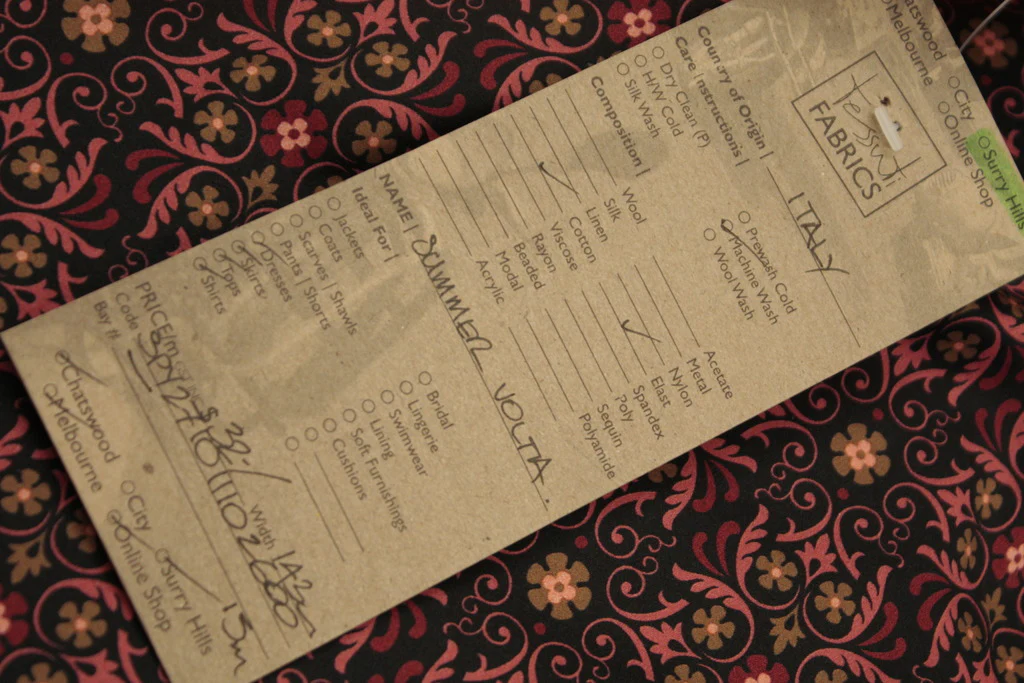 Chatswood
Melbourne
City
Online Shop
Surry Hills
Tessuti
FABRICS
Country of Origin | ITALY
Care Instructions |
Dry Clean (P)
H/W Cold
Silk Wash
Prewash Cold
Machine Wash
Wool Wash
Composition |
Wool
Silk
Linen
Cotton
Viscose
Rayon
Beaded
Modal
Acrylic
Acetate
Metal
Nylon
Elast
Spandex
Poly
Sequin
Polyamide
NAME | SUMMER VOLTA.
Ideal For |
Jackets
Coats
Scarves | Shawls
Pants | Shorts
Dresses
Skirts
Tops
Shirts
Bridal
Lingerie
Swimwear
Lining
Soft Furnishings
Cushions
PRICE/m
Width 142
Code
Bay #
Chatswood
Melbourne
City
Online Shop
Surry Hills
15m